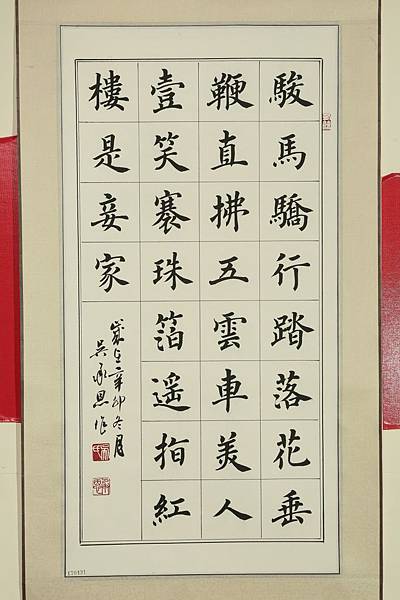 駿馬驕行踏落花垂
鞭直拂五雲車美人
壹笑褰珠箔遥指紅
樓是妾家
歲在辛卯冬月